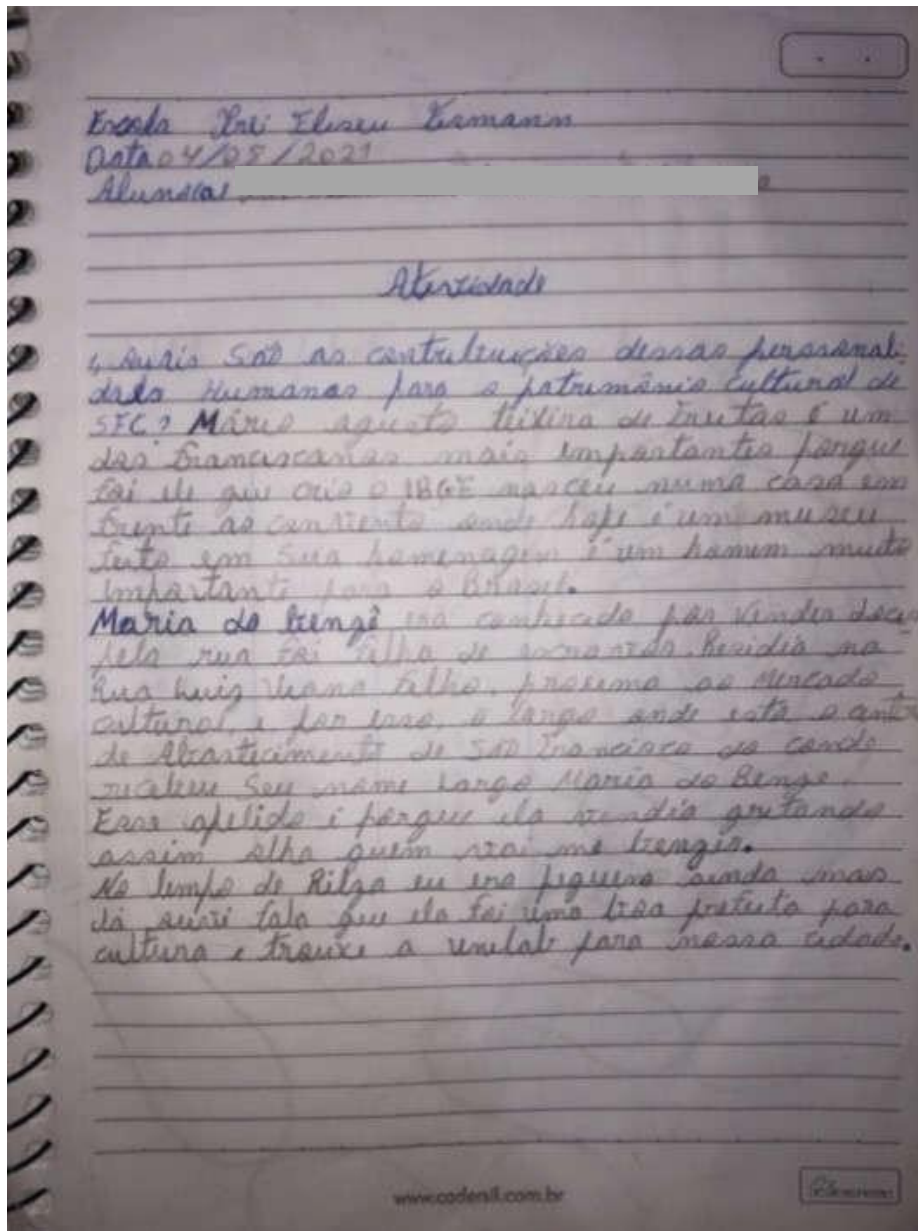 Escola Frei Eliseu Eismann
Data 04/05/2021
Aluno(a)
Atividade
1, Quais São as contribuições dessas personali
dada Humanas para o patrimônio Cultural de
SFC? Mário agusto teixina de Freitas é um
dos Franciscanas mais importantes porque
foi ele que crio o IBGE nasceu numa casa em
frente ao convento onde hoje é um museu
feito em Sua homenagem é um homem muito
importante para o Brasil.
Maria do bengê era conhecida por Vender doce
pela rua foi filha de escravos. Residia na
Rua Luiz Viana Filho, proximo ao Mercado
cultural, e por isso, o largo onde esta o
de Abastecimento de São Francisco do conde
recebeu Seu nome Largo Maria do Benge.
Esse apelido é porque ela vendia gritando
assim olha quem vai me bengir.
No tempo de Rilza eu era pequeno ainda mas
fala que ela foi uma boa prefeita para
cultura e trouxe a unilab para nossa cidade.
www.cadersil.com.br